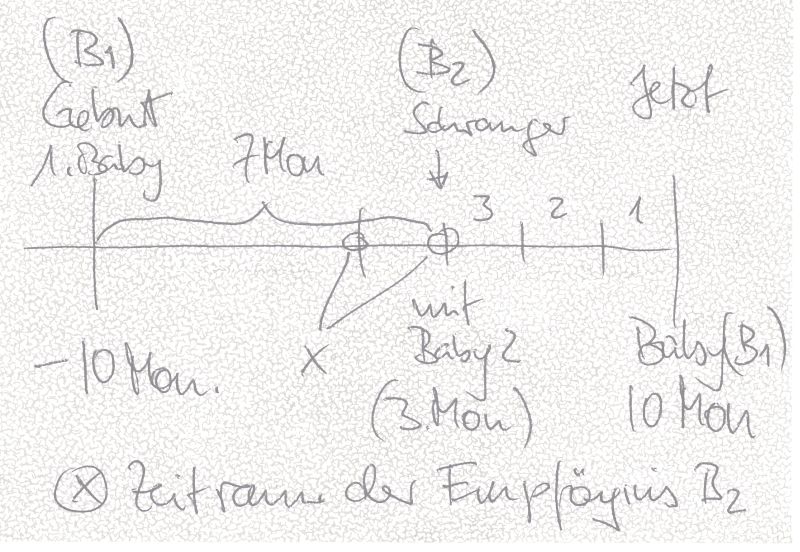 (B1)
Geburt
1. Baby
7 Mon
(B2)
Schwanger
Jetzt
3 2 1
X
mit
Baby 2
(3. Mon)
- 10 Mon.
Baby (B1)
10 Mon
(X) Zeitraum der Empfängnis B2